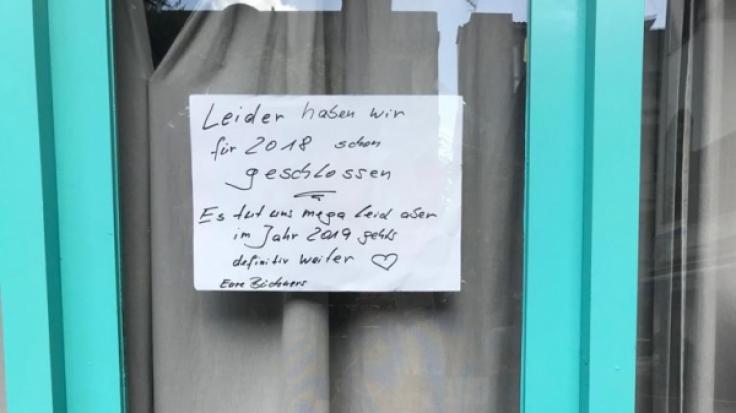 Leider haben wir
für 2018 schon
geschlossen
Es tut uns mega Leid aber
im Jahr 2019 gehts
definitiv weiter ♡
Eure